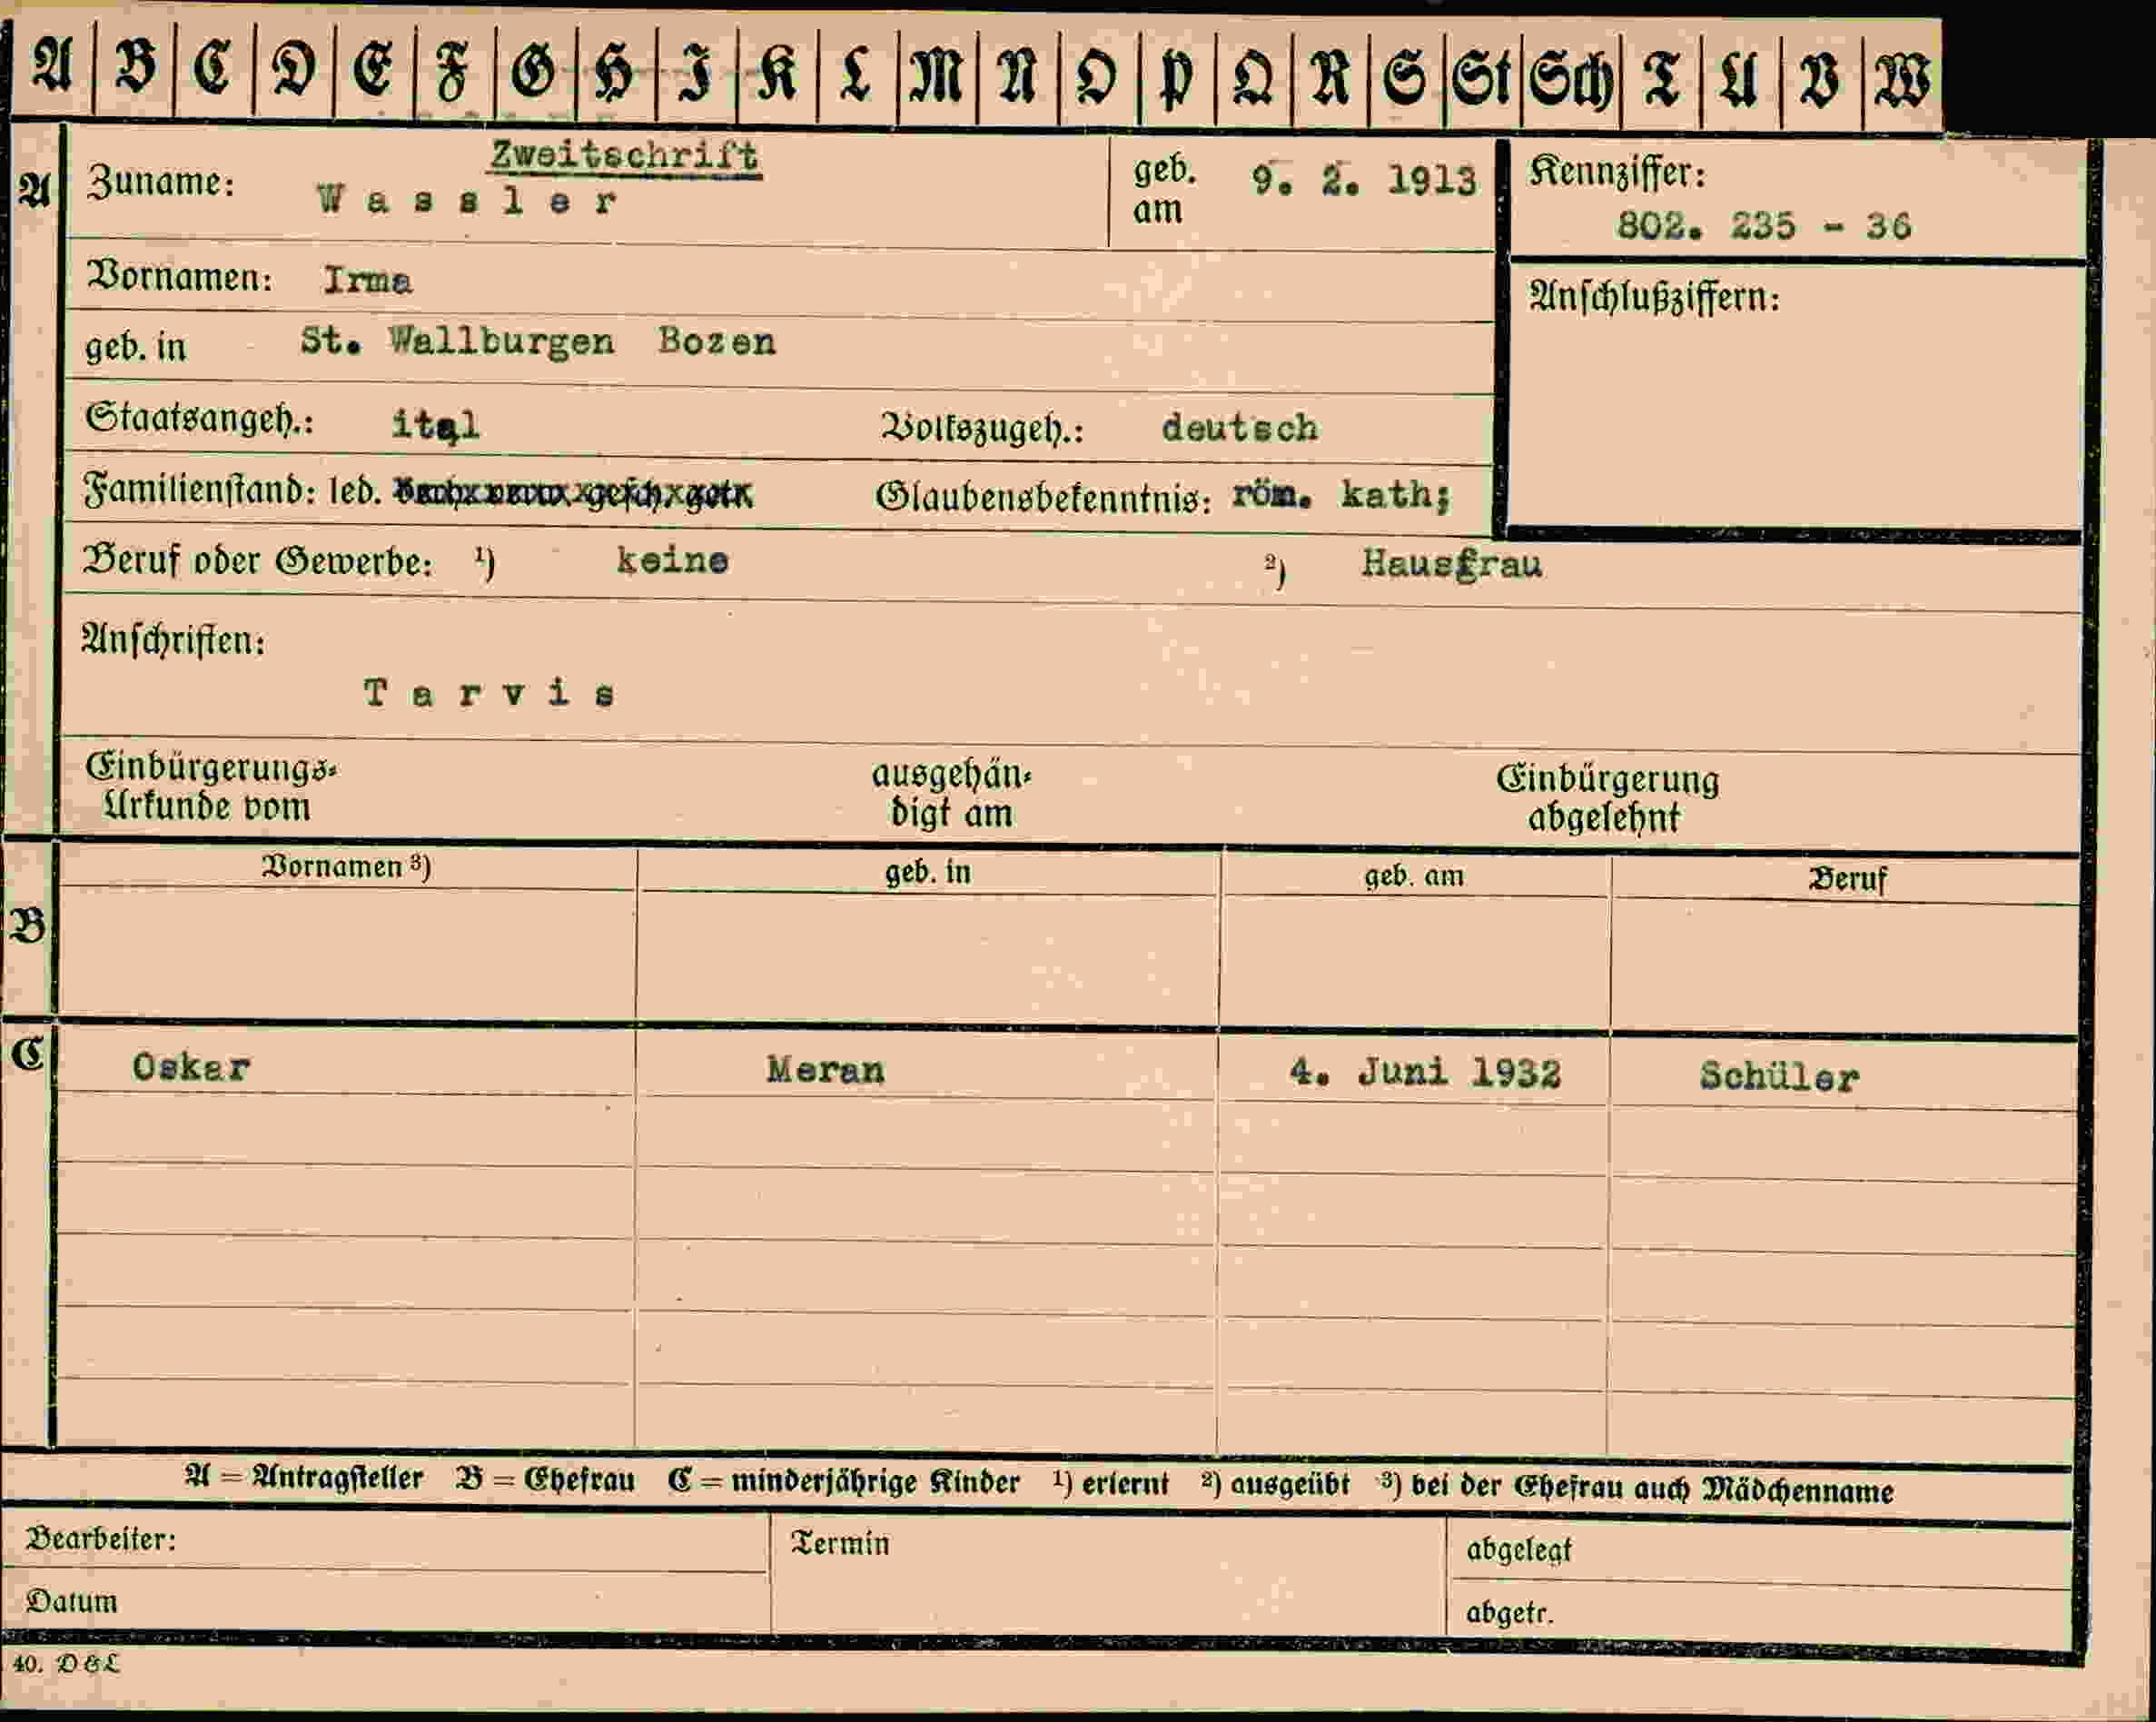 A B C D E F G H I K L M N O P Q R S St Sch T U V W
Zweitschrift
A Zuname: Wassler geb. am 9. 2. 1913 Kennziffer:
802. 235 - 36
Vornamen: Irma Anschlußziffern:
geb. in St. Wallburgen Bozen
Staatsangeh.: ital Volkszugeh.: deutsch
Familienstand: led. verh. verw. gesch. getr. Glaubensbekenntnis: röm. kath;
Beruf oder Gewerbe: ¹) keine ²) Hausfrau
Anschriften:
Tarvis
Einbürgerungs- ausgehän- Einbürgerung
Urkunde vom digt am abgelehnt
Vornamen ³) geb. in geb. am Beruf
B
C Oskar Meran 4. Juni 1932 Schüler
A = Antragsteller B = Ehefrau C = minderjährige Kinder ¹) erlernt ²) ausgeübt ³) bei der Ehefrau auch Mädchenname
Bearbeiter: Termin abgelegt
Datum abgetr.
40. D & L